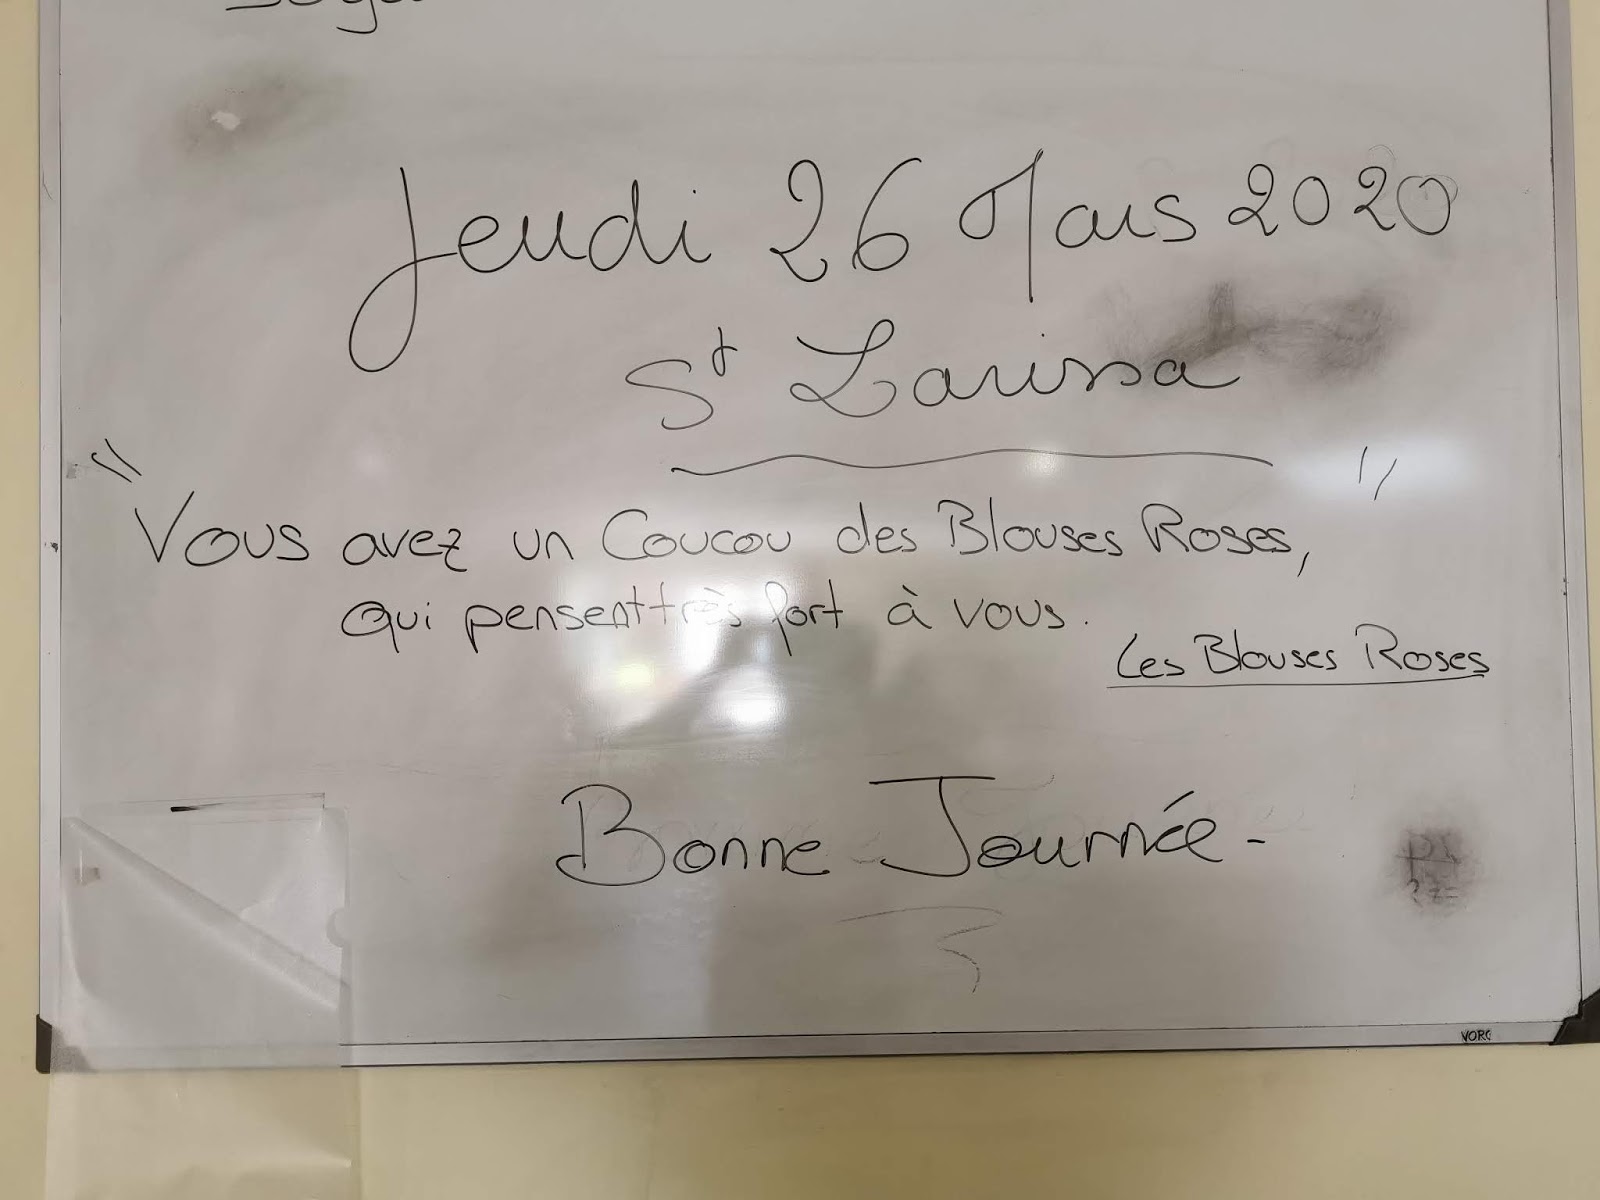 Jeudi 26 Mars 2020
St Larissa
" Vous avez un Coucou des Blouses Roses, "
qui pensent très fort à vous.
Les Blouses Roses
Bonne Journée -